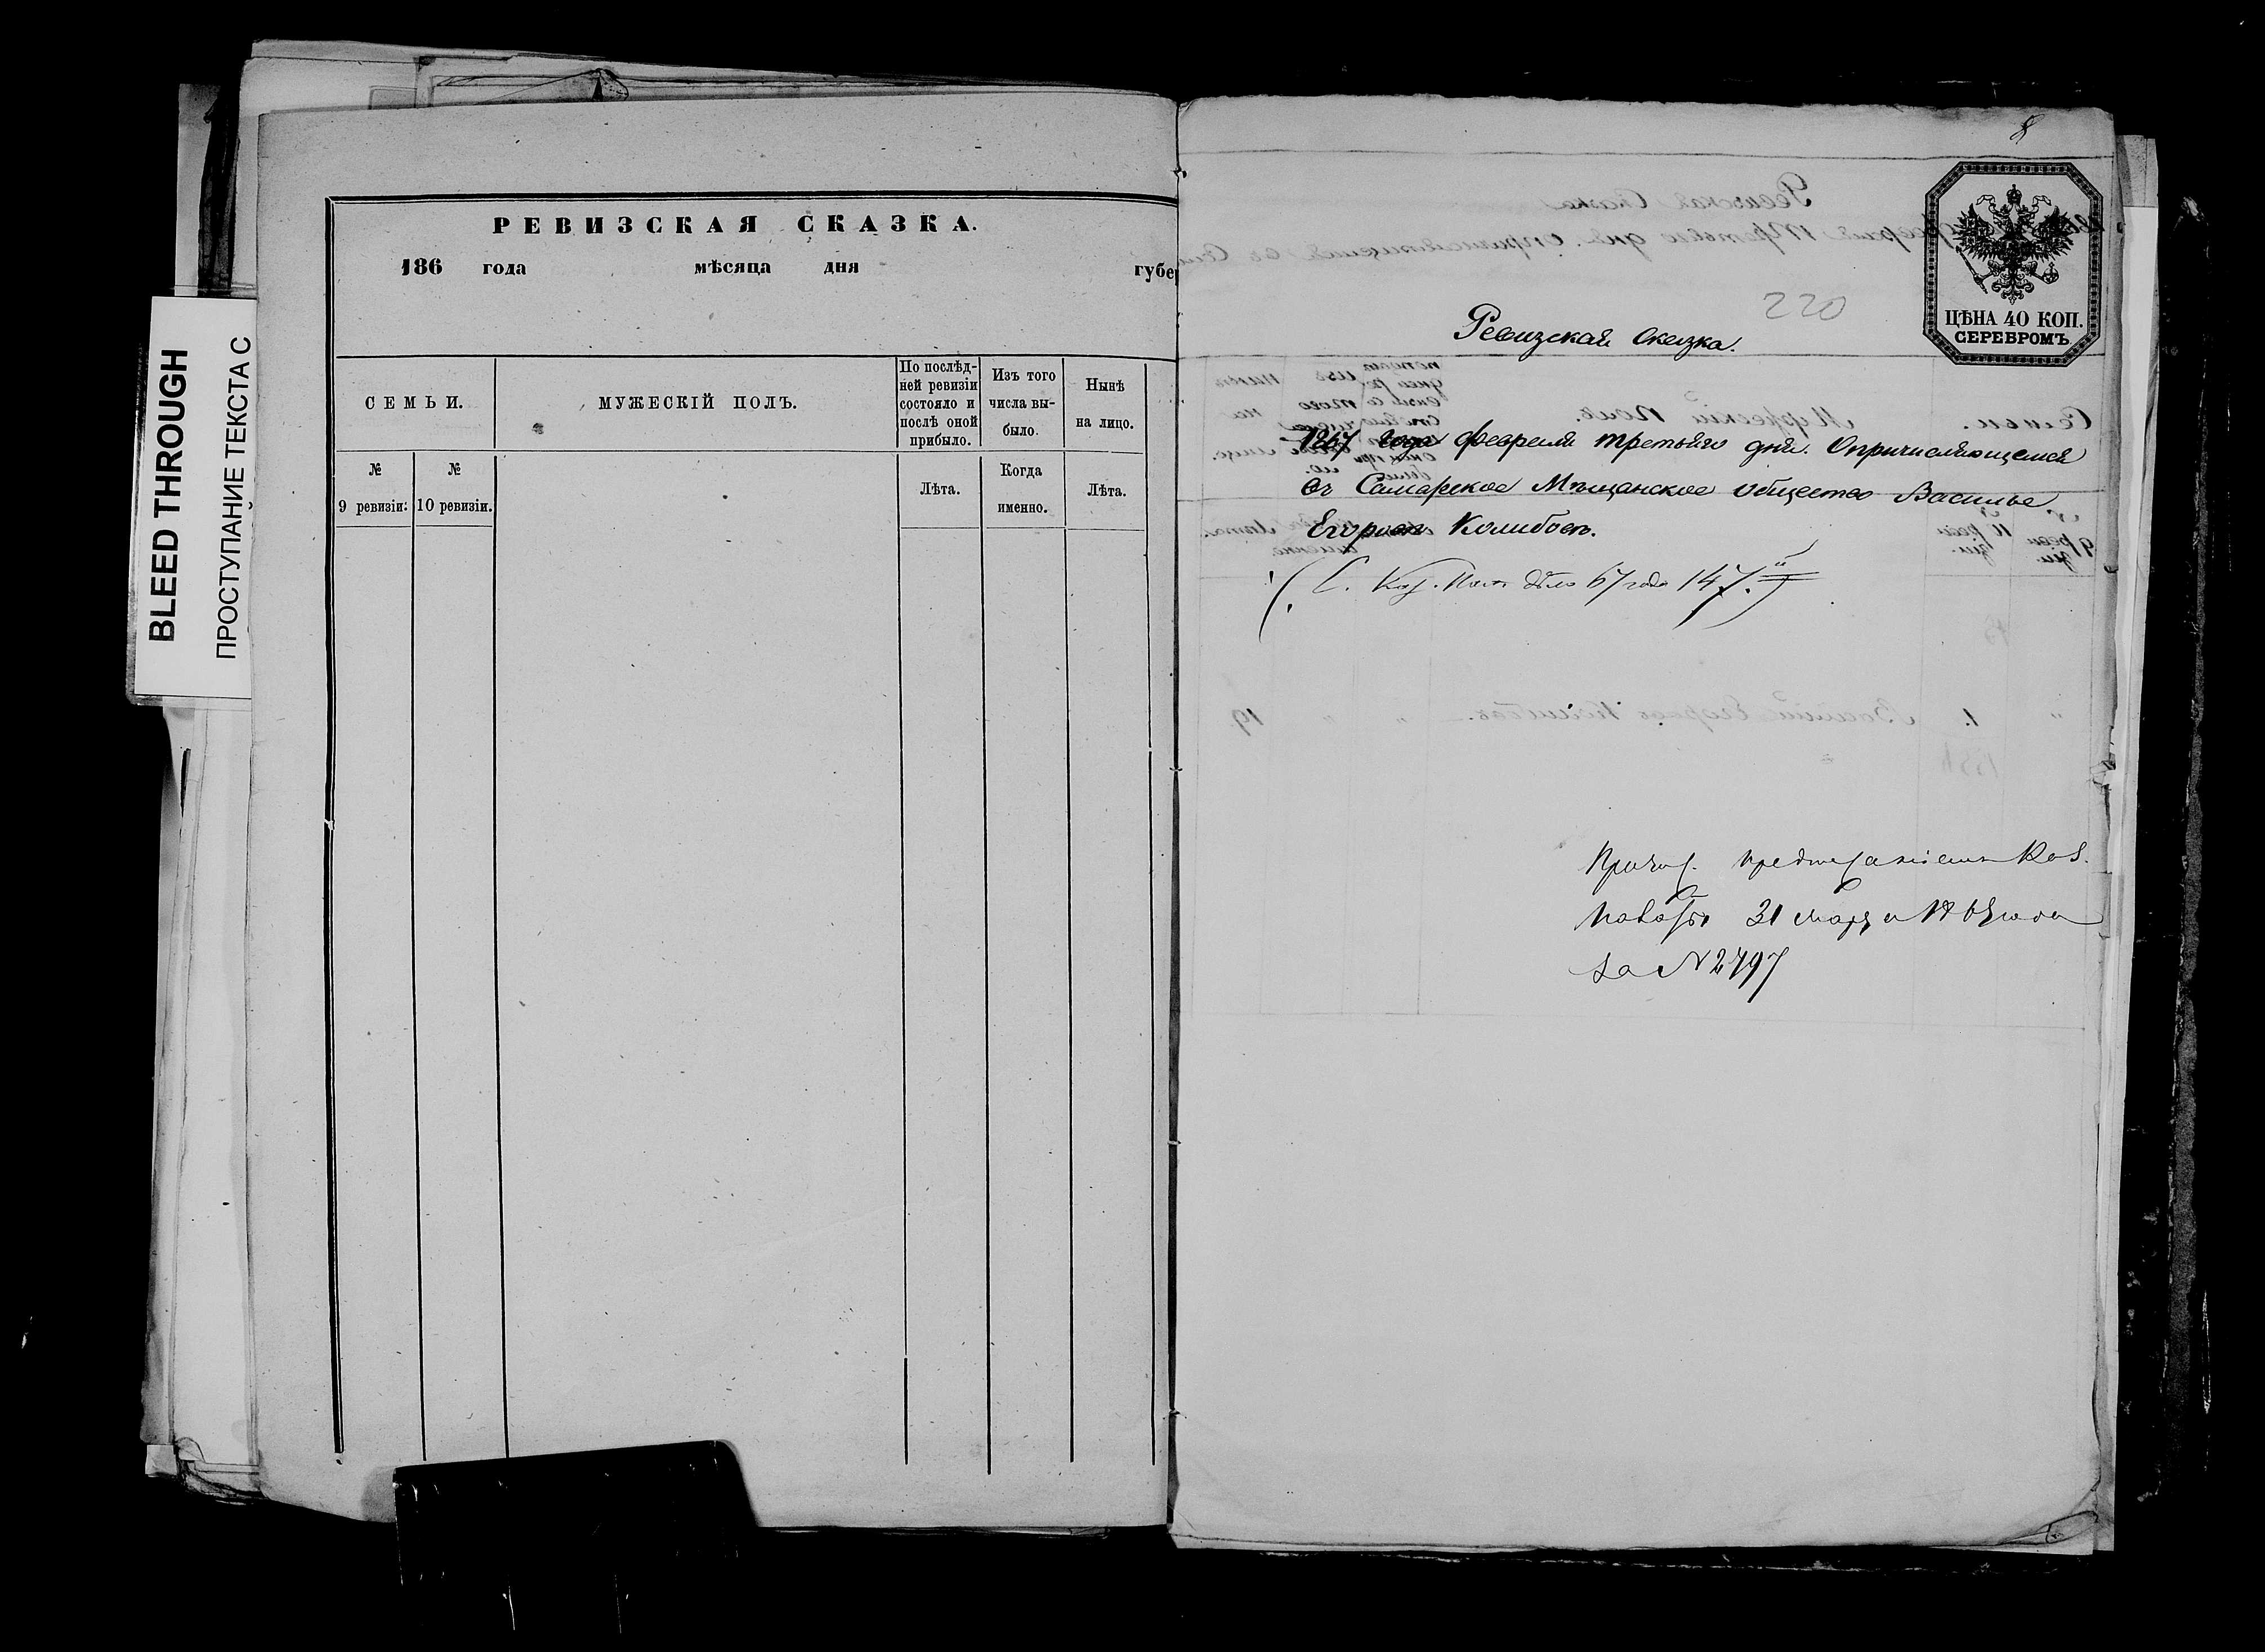 BLEED THROUGH
ПРОСТУПАНИЕ ТЕКСТА С
РЕВИЗСКАЯ СКАЗКА.
186 года мѣсяца дня губе
СЕМЬИ.
МУЖЕСКІЙ ПОЛЪ.
По послѣд-
ней ревизіи
состояло и
послѣ оной
прибыло.
Изъ того
числа вы-
было.
Нынѣ
на лицо.
№
9 ревизіи:
№
10 ревизіи.
Лѣта.
Когда
именно.
Лѣта.
8
ЦѢНА 40 КОП.
СЕРЕБРОМЪ
220
Ревизская сказка.
1867 года февраля третьяго дня. О причисляющемся
въ Самарское Мѣщанское общество Василье
Егоровѣ Колибовѣ.
(С. Каз. Пал. дѣло 67 года 147.)
Причис. предписаніемъ Каз.
Палаты 31 марта 1867 года
за № 2797